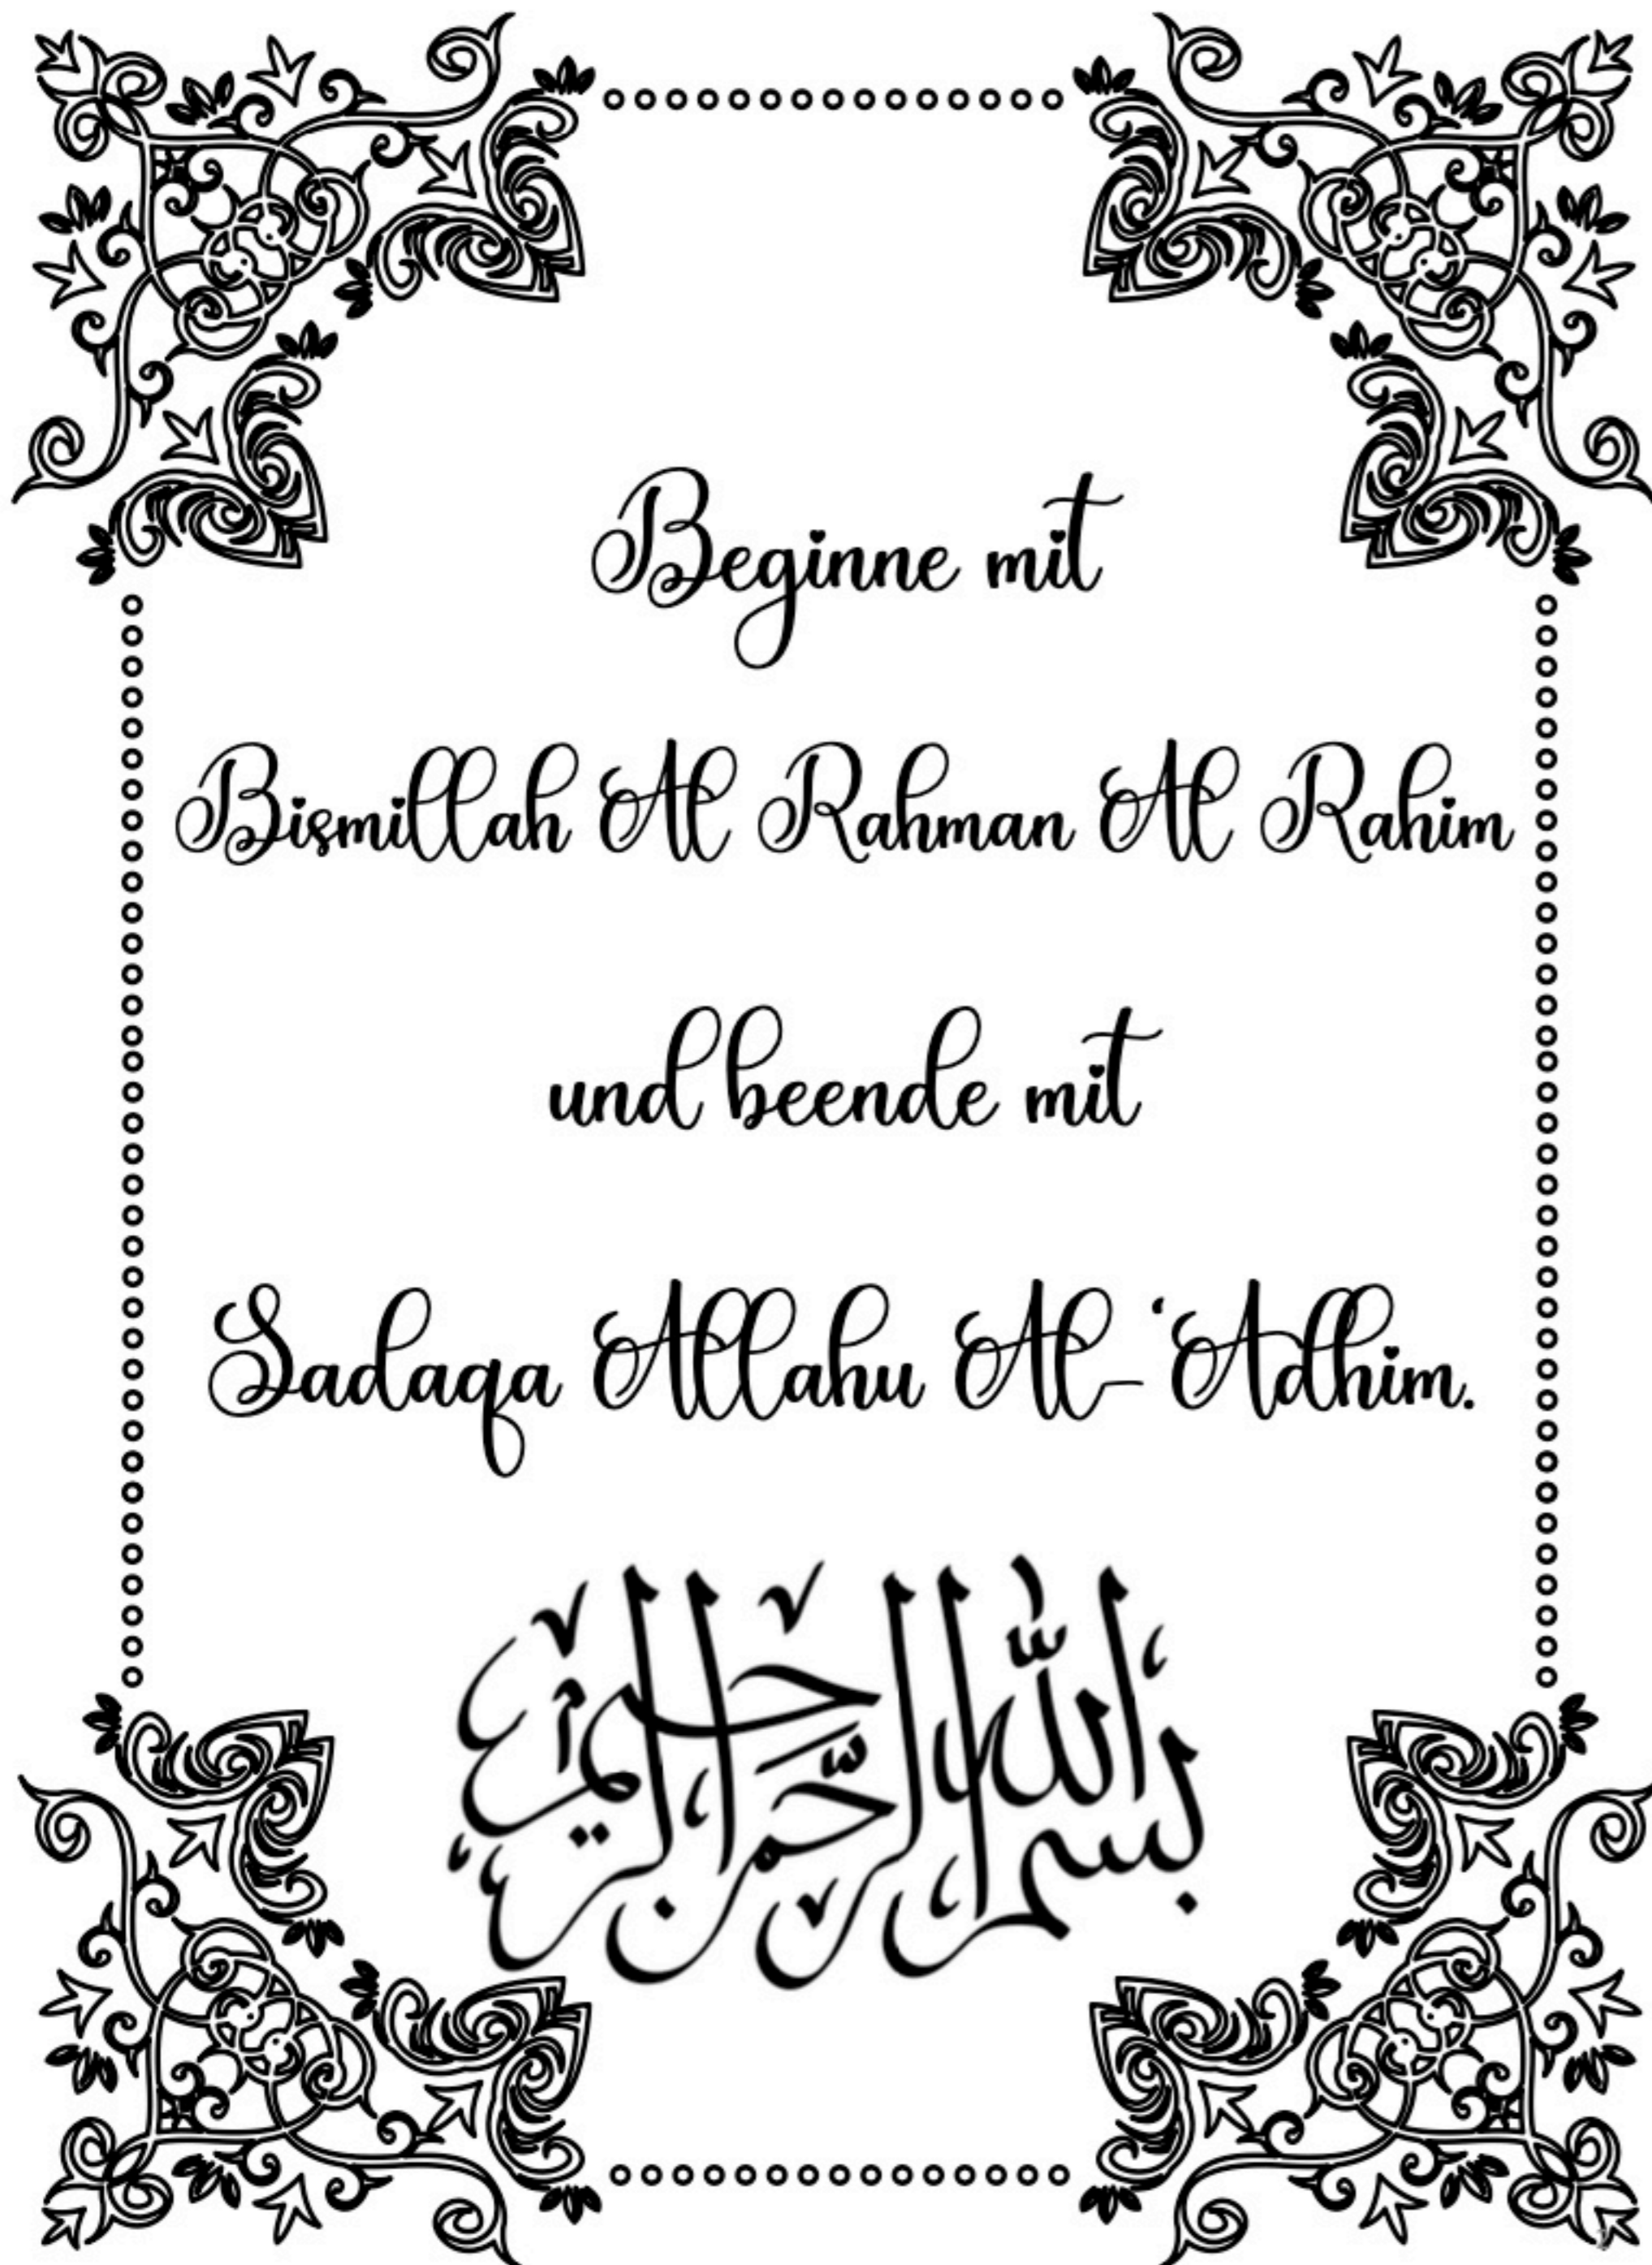 Beginne mit
Bismillah Al Rahman Al Rahim
und beende mit
Sadaqa Allahu Al-‘Adhim.
بسم الله الرحمن الرحيم